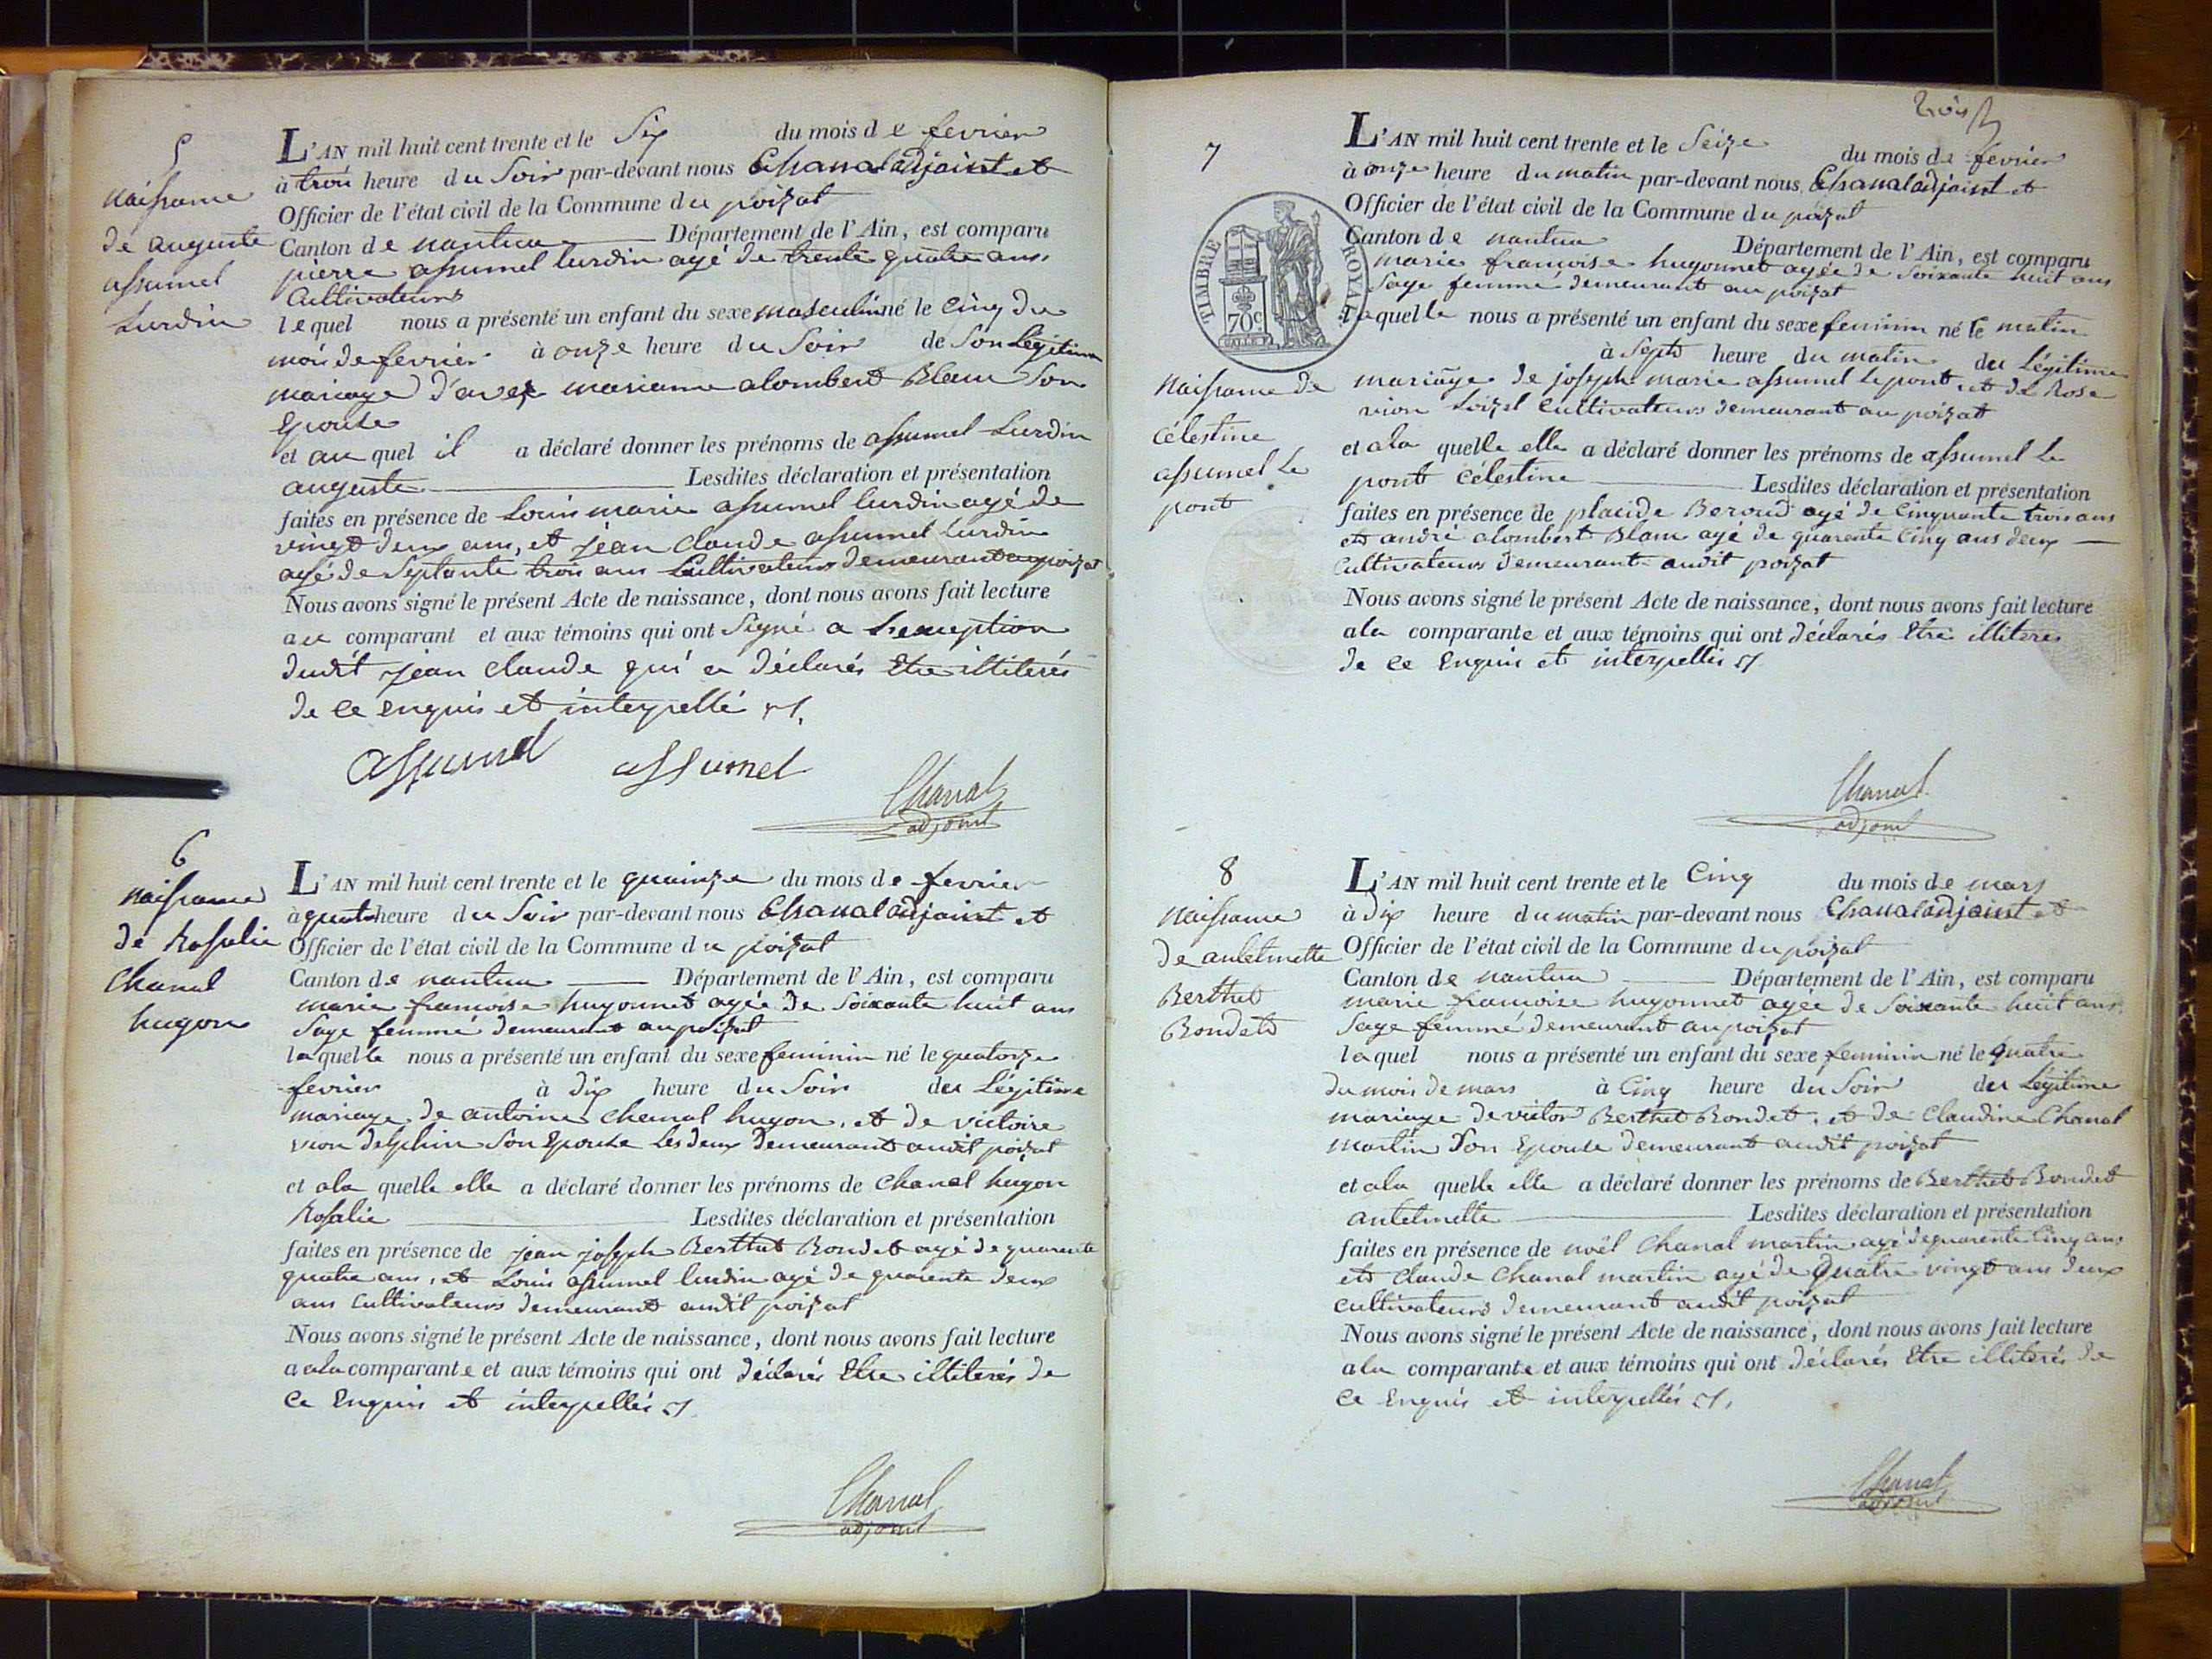 5
naissance
de auguste
assumel
Lurdin
L'AN mil huit cent trente et le Six du mois de fevrier
à trois heure du Soir par-devant nous Chanal adjoint et
Officier de l'état civil de la Commune du poizat
Canton de nantua Département de l'Ain, est comparu
pierre assumel lurdin agé de trente quatre ans
Cultivateurs
lequel nous a présenté un enfant du sexe masculin né le Cinq du
mois de fevrier à onze heure du Soir de Son Légitime
mariage d'avex mariane alombert Blanc Son
Epouse
et au quel il a déclaré donner les prénoms de assumel Lurdin
auguste Lesdites déclaration et présentation
faites en présence de Louis marie assumel lurdin agé de
vingt deux ans, et jéan claude assumel Lurdin
agé de Septante trois ans Cultivateurs demeurant au poizat
Nous avons signé le présent Acte de naissance, dont nous avons fait lecture
au comparant et aux témoins qui ont Signé a Lexception
dudit jean claude qui a déclarés Etre illiterés
de ce enquis et interpellé
assumel assumel
Chanal
adjoint
6
naissance
de Rosalie
Chanal
hugon
L'AN mil huit cent trente et le quainze du mois de fevrier
à quatre heure du Soir par-devant nous Chanal adjoint et
Officier de l'état civil de la Commune du poizat
Canton de nantua Département de l'Ain, est comparu
marie francoise hugonnet agée de Soixante huit ans
Sage femme demeurant au poizat
laquelle nous a présenté un enfant du sexe feminin né le quatorze
fevrier à dix heure du Soir du Légitime
mariage de antoine Chanal hugon, et de victoire
vion delphin Son Epouse Les deux demeurant audit poizat
et ala quelle elle a déclaré donner les prénoms de Chanal hugon
Rosalie Lesdites déclaration et présentation
faites en présence de jean joseph Berthet Bondet agé de quarente
quatre ans, et Louis assumel lurdin agé de quarente deux
ans cultivateurs demeurant audit poizat
Nous avons signé le présent Acte de naissance, dont nous avons fait lecture
a ala comparante et aux témoins qui ont déclarés Etre illiterés de
Ce Enquis et interpellés
Chanal
adjoint
trois
7
TIMBRE ROYAL
70c
naissance de
Célestine
assumel Le
pont
L'AN mil huit cent trente et le Seize du mois de fevrier
à onze heure du matin par-devant nous Chanal adjoint et
Officier de l'état civil de la Commune du poizat
Canton de nantua Département de l'Ain, est comparu
marie francoise hugonnet agée de Soixante huit ans
Sage femme demeurant au poizat
laquelle nous a présenté un enfant du sexe feminin né le matin
à Sept heure du matin du Légitime
mariage de joseph marie assumel Le pont, et de Rose
vion Loizel Cultivateurs demeurant au poizat
et ala quelle elle a déclaré donner les prénoms de assumel Le
pont Célestine Lesdites déclaration et présentation
faites en présence de placide Beroud agé de Cinquante trois ans
et andré alombert Blanc agé de quarente Cinq ans deux
Cultivateurs demeurant audit poizat
Nous avons signé le présent Acte de naissance, dont nous avons fait lecture
ala comparante et aux témoins qui ont déclarés Etre illiteres
de ce Enquis et interpellés
Chanal
adjoint
8
naissance
de antelmette
Berthet
Bondet
L'AN mil huit cent trente et le Cinq du mois de mars
à dix heure du matin par-devant nous Chanal adjoint et
Officier de l'état civil de la Commune du poizat
Canton de nantua Département de l'Ain, est comparu
marie francoise hugonnet agée de Soixante huit ans
Sage femme demeurant au poizat
laquel nous a présenté un enfant du sexe feminin né le quatre
du mois de mars à Cinq heure du Soir du Légitime
mariage de victor Berthet Bondet, et de Claudine Chanal
martin Son Epouse demeurant audit poizat
et ala quelle elle a déclaré donner les prénoms de Berthet Bondet
antelmette Lesdites déclaration et présentation
faites en présence de noël Chanal martin agé de quarente Cinq ans
et Claude Chanal martin agé de quatre vingt ans deux
cultivateurs demeurant audit poizat
Nous avons signé le présent Acte de naissance, dont nous avons fait lecture
ala comparante et aux témoins qui ont déclarés Etre illiterés de
ce Enquis et interpellés
Chanal
adjoint